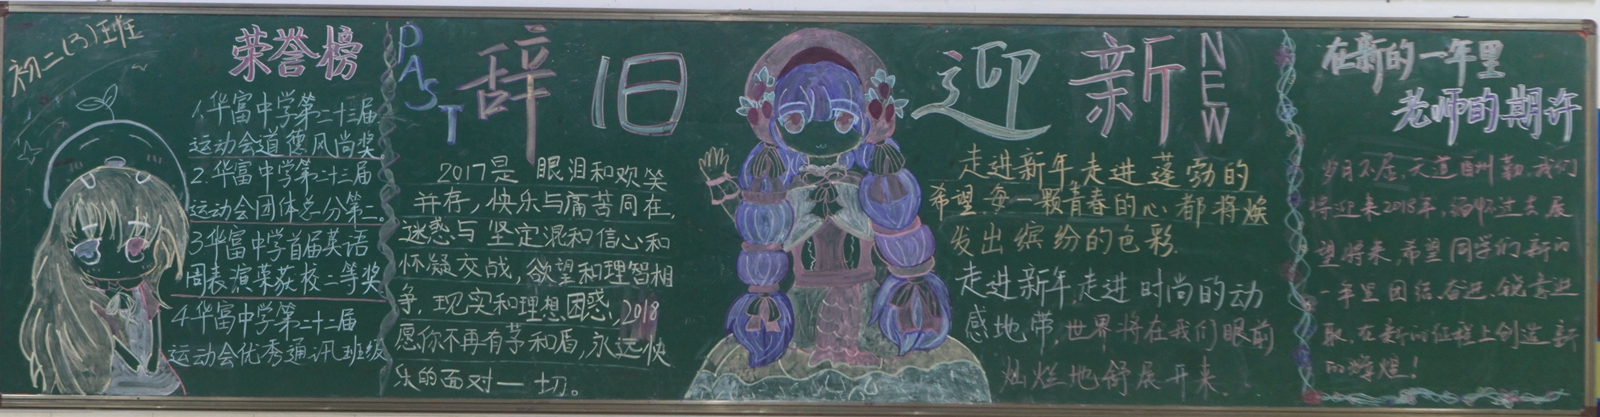 初二(3)班
荣誉榜
1.华富中学第二十三届
运动会道德风尚奖
2.华富中学第二十三届
运动会团体总分第二。
3.华富中学首届英语
周表演荣获校二等奖
4.华富中学第二十二届
运动会优秀通讯班级
PAST
辞旧
迎新
NEW
2017是 眼泪和欢笑
并存,快乐与痛苦同在,
迷惑与坚定混和信心和
怀疑交战,欲望和理智相
争,现实和理想困惑,2018
愿你不再有茅和盾,永远快
乐的面对一切。
走进新年走进蓬勃的
希望每一颗青春的心都将焕
发出缤纷的色彩.
走进新年走进时尚的动
感地带,世界将在我们眼前
灿烂地舒展开来
在新的一年里
老师的期许
岁月不居,天道酬勤.我们
将迎来2018年,过去展
望将来,希望同学们新的
一年里团结、奋进、锐意进
取、在新的征程上创造新
的辉煌!